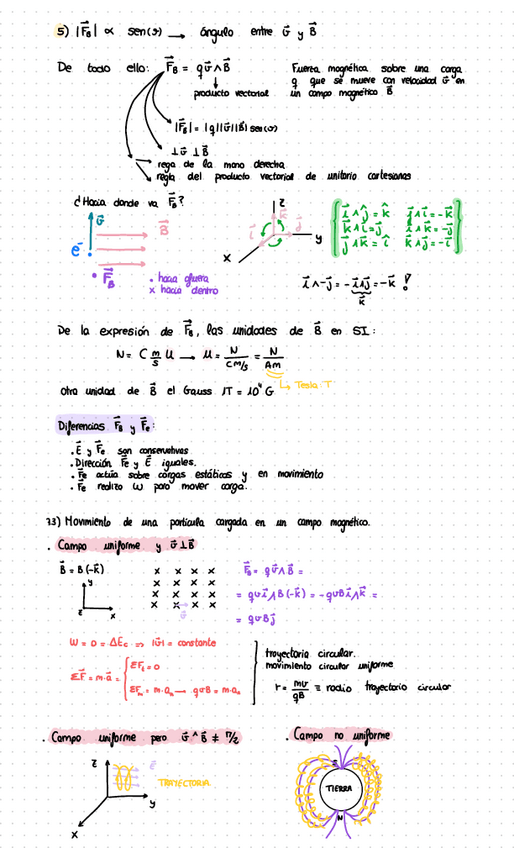 5) |F_B| ∝ sen(θ) → ángulo entre v⃗ y B⃗
De todo ello: F⃗_B = q v⃗ ∧ B⃗
producto vectorial
Fuerza magnética sobre una carga
q que se mueve con velocidad v⃗ en
un campo magnético B⃗
|F⃗_B| = |q||v⃗||B⃗| sen(θ)
⊥ v⃗ ⊥ B⃗
rega de la mano derecha
regla del producto vectorial de unitario cartesianas.
¿Hacia donde va F⃗_B?
v⃗
B⃗
e⁻
• F⃗_B
• hacia fuera
x hacia dentro
z
k⃗
i⃗
j⃗
y
x
i⃗∧j⃗ = k⃗ j⃗∧i⃗ = -k⃗
k⃗∧i⃗ = j⃗ i⃗∧k⃗ = -j⃗
j⃗∧k⃗ = i⃗ k⃗∧j⃗ = -i⃗
i⃗ ∧ -j⃗ = - i⃗∧j⃗ = -k⃗ !
k⃗
De la expresión de F⃗_B, las unidades de B⃗ en SI:
N = C m/s u → u = N/(C m/s) = N/(Am)
Tesla: T
otra unidad de B⃗ el Gauss 1T = 10⁴ G
Diferencias F⃗_B y F⃗e:
• E⃗ y F⃗e son conservativas
• Dirección F⃗e y E⃗ iguales.
• F⃗e actúa sobre cargas estáticas y en movimiento
• F⃗e realiza W para mover carga.
7.3) Movimiento de una partícula cargada en un campo magnético.
• Campo uniforme y v⃗ ⊥ B⃗
B⃗ = B(-k⃗)
y
x
x x x x
x x x x
x x x x
x x x x
v⃗
F⃗_B = q v⃗ ∧ B⃗ =
= q v i⃗ ∧ B(-k⃗) = -q v B i⃗ ∧ k⃗ =
= q v B j⃗
W = 0 = ΔEc ⇒ |v⃗| = constante
ΣF⃗ = m·a⃗ =
ΣFt = 0
ΣFn = m·an → qvB = m·an
trayectoria circular.
movimiento circular uniforme
r = mv/qB ≡ radio trayectoria circular
• Campo uniforme pero v⃗ ^ B⃗ ≠ π/2
• Campo no uniforme
z
y
x
TRAYECTORIA
TIERRA
N